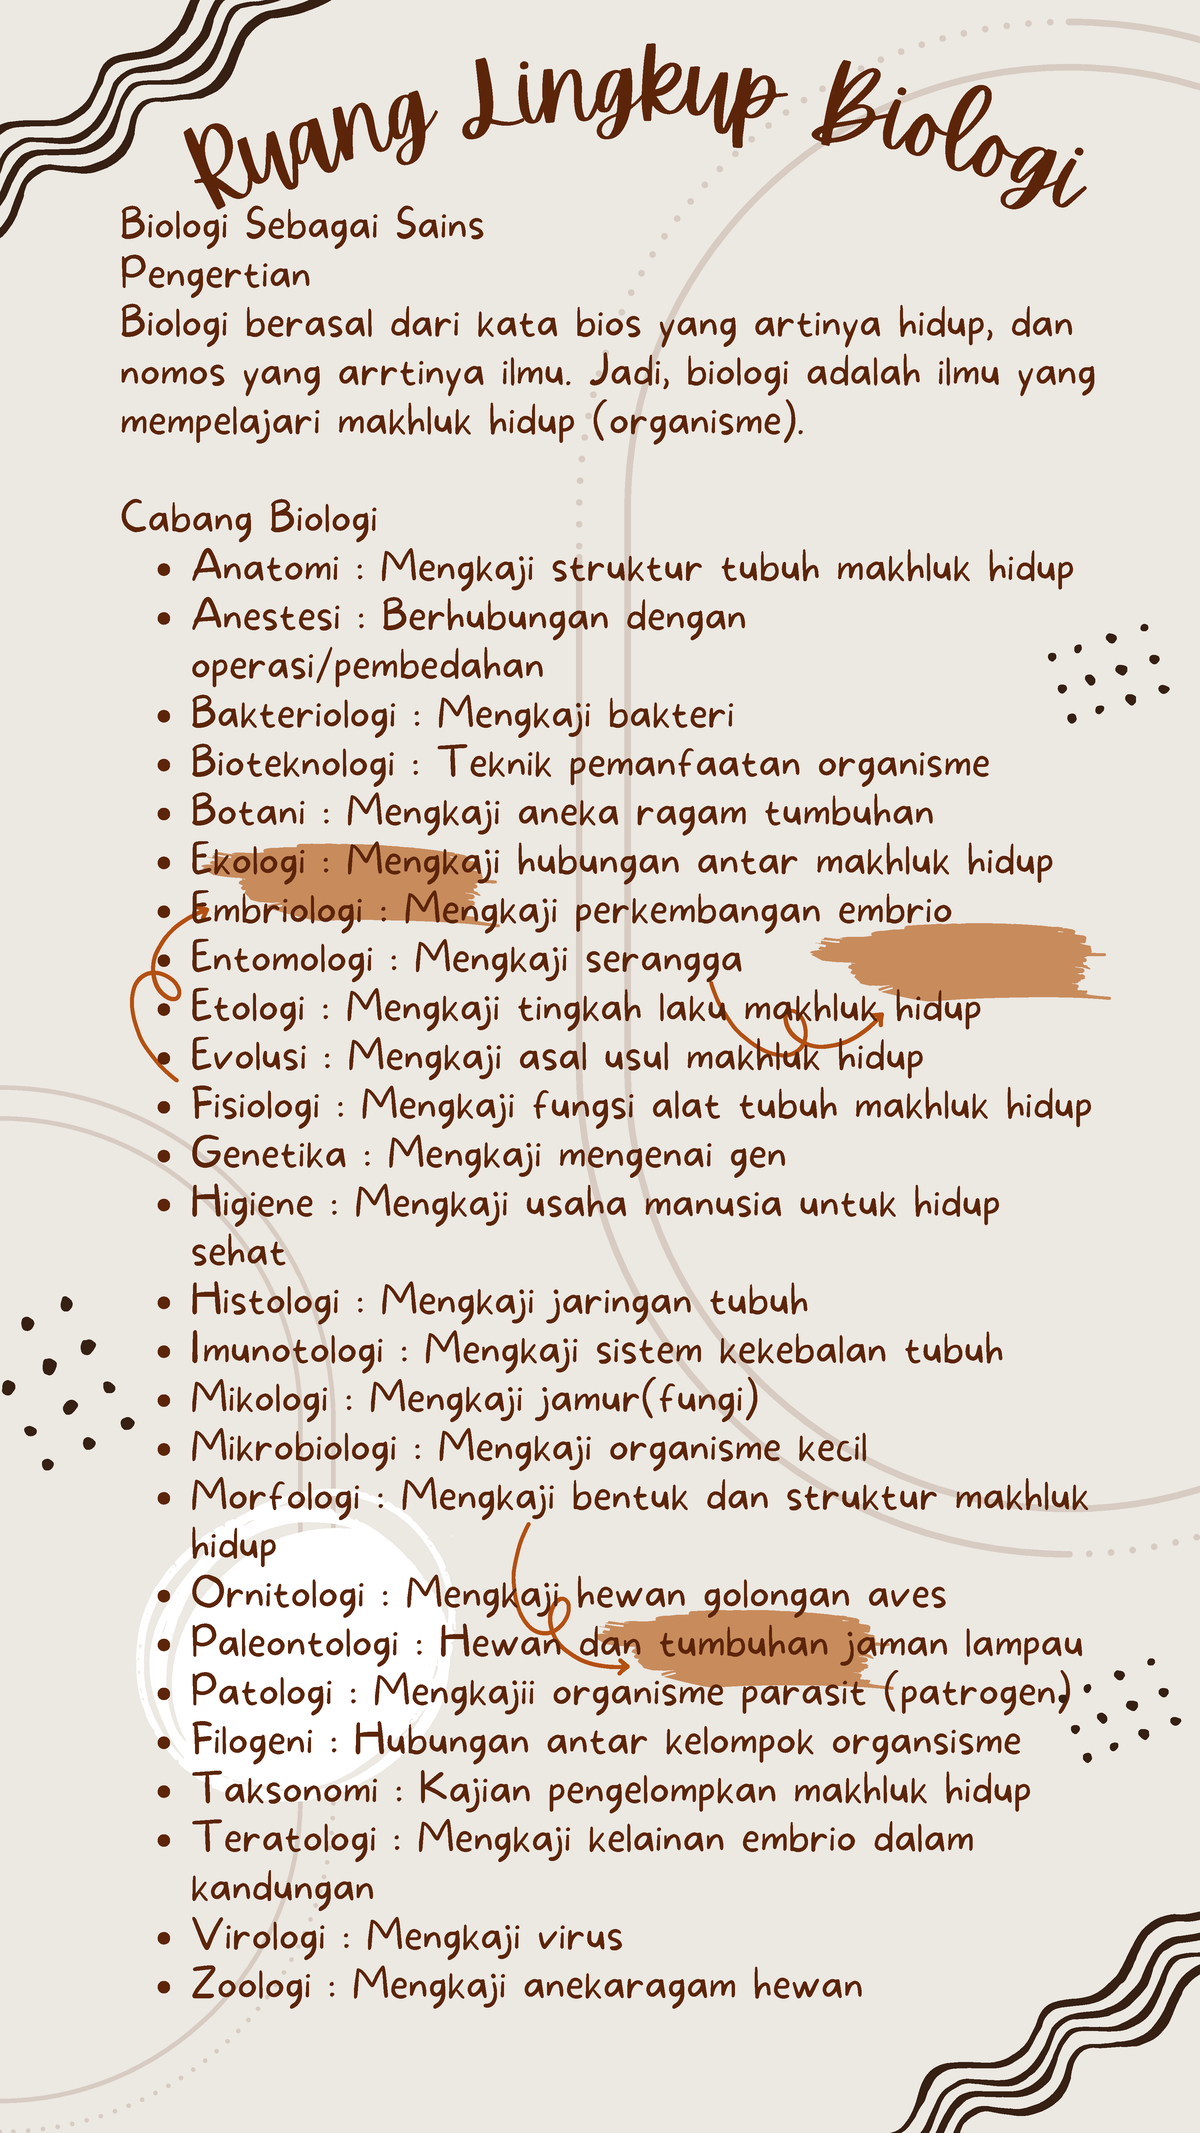 Ruang Lingkup Biologi
Biologi Sebagai Sains
Pengertian
Biologi berasal dari kata bios yang artinya hidup, dan
nomos yang arrtinya ilmu. Jadi, biologi adalah ilmu yang
mempelajari makhluk hidup (organisme).
Cabang Biologi
• Anatomi : Mengkaji struktur tubuh makhluk hidup
• Anestesi : Berhubungan dengan
operasi/pembedahan
• Bakteriologi : Mengkaji bakteri
• Bioteknologi : Teknik pemanfaatan organisme
• Botani : Mengkaji aneka ragam tumbuhan
• Ekologi : Mengkaji hubungan antar makhluk hidup
• Embriologi : Mengkaji perkembangan embrio
• Entomologi : Mengkaji serangga
• Etologi : Mengkaji tingkah laku makhluk hidup
• Evolusi : Mengkaji asal usul makhluk hidup
• Fisiologi : Mengkaji fungsi alat tubuh makhluk hidup
• Genetika : Mengkaji mengenai gen
• Higiene : Mengkaji usaha manusia untuk hidup
sehat
• Histologi : Mengkaji jaringan tubuh
• Imunotologi : Mengkaji sistem kekebalan tubuh
• Mikologi : Mengkaji jamur(fungi)
• Mikrobiologi : Mengkaji organisme kecil
• Morfologi : Mengkaji bentuk dan struktur makhluk
hidup
• Ornitologi : Mengkaji hewan golongan aves
• Paleontologi : Hewan dan tumbuhan jaman lampau
• Patologi : Mengkajii organisme parasit (patrogen)
• Filogeni : Hubungan antar kelompok organsisme
• Taksonomi : Kajian pengelompkan makhluk hidup
• Teratologi : Mengkaji kelainan embrio dalam
kandungan
• Virologi : Mengkaji virus
• Zoologi : Mengkaji anekaragam hewan